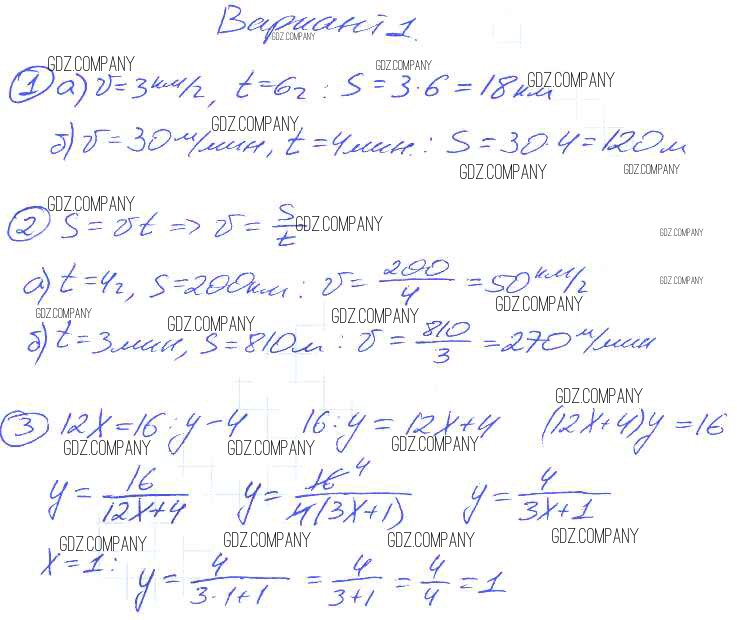 Вариант 1.
GDZ.COMPANY
GDZ.COMPANY GDZ.COMPANY
① а) v = 3 км/ч, t = 6ч : S = 3·6 = 18 км GDZ.COMPANY
GDZ.COMPANY
б) v = 30 м/мин, t = 4 мин. : S = 30·4 = 120 м
GDZ.COMPANY GDZ.COMPANY
GDZ.COMPANY
② S = vt => v = S/t GDZ.COMPANY GDZ.COMPANY
а) t = 4ч, S = 200 км : v = 200/4 = 50 км/ч GDZ.COMPANY
GDZ.COMPANY GDZ.COMPANY GDZ.COMPANY GDZ.COMPANY
б) t = 3 мин, S = 810 м : v = 810/3 = 270 м/мин
GDZ.COMPANY
③ 12x = 16 : y - 4 16 : y = 12x + 4 (12x + 4)y = 16
GDZ.COMPANY GDZ.COMPANY GDZ.COMPANY
y = 16/(12x + 4) y = 16 4/(4(3x + 1)) y = 4/(3x + 1)
GDZ.COMPANY GDZ.COMPANY GDZ.COMPANY GDZ.COMPANY
x = 1 : y = 4/(3·1 + 1) = 4/(3 + 1) = 4/4 = 1